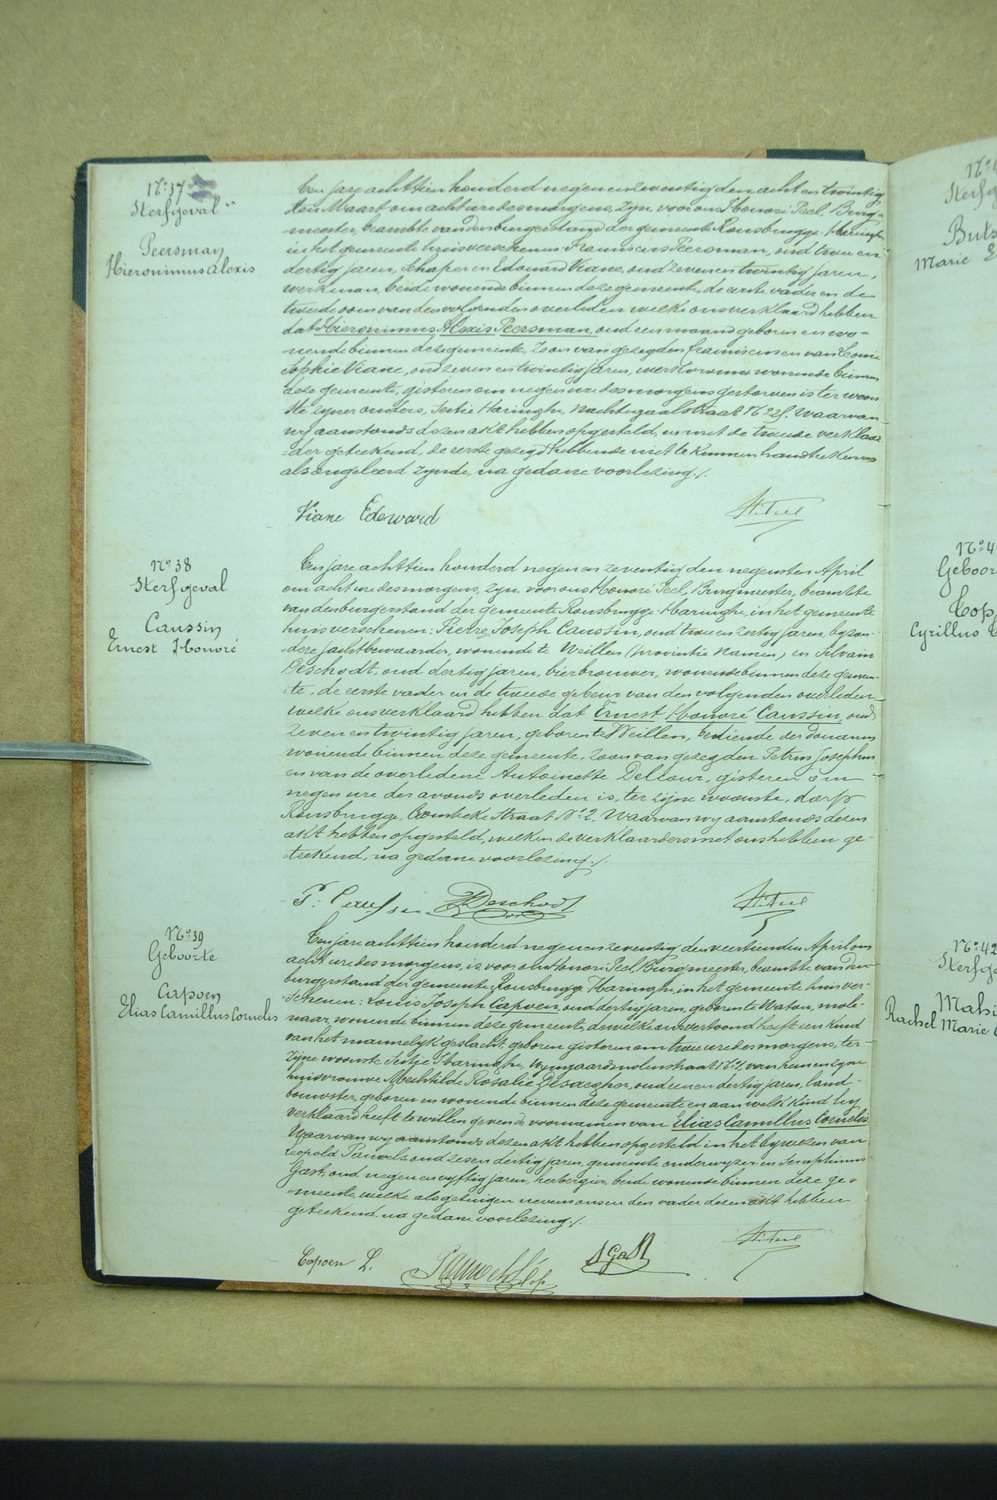 N° 37
Sterfgeval
Peersman
Hieronimus Alexis
Een jare achttien honderd negen en zeventig den acht en twintig-
sten Maart om acht ure des morgens, zyn voor ons Honoré Peel, Burg-
meester, beambte van den burgerstand der gemeente Rousbrugge-Haringhe
in het gemeente huis verschenen Franciscus Peersman, oud twee en
dertig jaren, schaper en Edouard Viane, oud zeven en twintig jaren,
werkman, beide wonende binnen deze gemeente, de eerste vader en de
tweede oom van den volgenden overleden welke ons verklaard hebben
dat Hieronimus Alexis Peersman, oud een maand geboren en wo-
nende binnen deze gemeente, Zoon van gezegden Franciscus en van
Sophie Viane, oud zeven en twintig jaren, werkvrouw wonende binnen
deze gemeente, gisteren om negen ure des morgens gestorven is ter woon-
ste zyner ouders, Sectie Haringhe, Nachtegaalstraat N° 22f. Waarvan
wy aanstonds dezen akt hebben opgesteld, en met de tweede verklaar-
der geteekend, de eerste gezegd hebbende niet te kunnen handteekenen
als ongeleerd zynde, na gedane voorlezing ./.
Viane Edeward
H. Peel
N° 38
Sterfgeval
Caussin
Ernest Honoré
Een jare achttien honderd negen en zeventig den negensten April
om acht ure des morgens, zyn voor ons Honoré Peel, Burgmeester, beambte
van den burgerstand der gemeente Rousbrugge-Haringhe, in het gemeente
huis verschenen: Pierre Joseph Caussin, oud twee en zestig jaren, byzon-
dere jachtbewaarder, wonende te Weillen (provintie Namen) en Silvain
Deschodt, oud dertig jaren, bierbrouwer, wonende binnen deze gemeen-
te, de eerste vader en de tweede gebuur van den volgenden overleden
welke ons verklaard hebben dat Ernest Honoré Caussin, oud
zeven en twintig jaren, geboren te Weillen, bediende der douanen
wonende binnen deze gemeente, Zoon van gezegden Petrus Josephus
en van de overledene Antoinette Delcour, gisteren om
negen ure des avonds overleden is, ter zijne woonste, dorp
Rousbrugge, Crombeke Straat N° 2. Waarvan wy aanstonds dezen
akt hebben opgesteld, welken de verklaarders met ons hebben ge-
teekend, na gedane voorlezing ./.
P. Caussin
Deschodt
H. Peel
N° 39
Geboorte
Capoen
Elias Camillus Cornelis
Een jare achttien honderd negen en zeventig den veertienden April om
acht ure des morgens, is voor ons Honoré Peel, Burgmeester, beambte van den
burgerstand der gemeente Rousbrugge-Haringhe, in het gemeente huis ver-
schenen: Louis Joseph Capoen, oud dertig jaren, geboren te Watou, mole-
naar, wonende binnen deze gemeente, dewelke ons vertoond heeft een kind
van het mannelyk geslacht, geboren gisteren om twee ure des morgens, ter
zyne woonste Sectie Haringhe, Wyngaardmolenstraat N° 4, van hem en zyne
huisvrouwe Mechtilde Rosalie Desaegher, oud een en dertig jaren, land-
bouwster, geboren en wonende binnen deze gemeente en aan welk kind hy
verklaard heeft te willen geven de voornamen van Elias Camillus Cornelis
Waarvan wy aanstonds dezen akt hebben opgesteld in het bywezen van
Leopold Pauwels oud zes en dertig jaren, gemeente onderwyzer en Seraphinus
Gast, oud negen en vyftig jaren, herbergier, beide wonende binnen deze ge-
meente, welke als getuigen nevens ons en den vader dezen akt hebben
geteekend na gedane voorlezing ./.
Capoen L.
Pauwels Lop.
S Gast
H. Peel
Sterfg
Buts
Marie
Geboor
Cop
Cyrillus
N° 42
Sterfge
Mahi
Rachel Marie